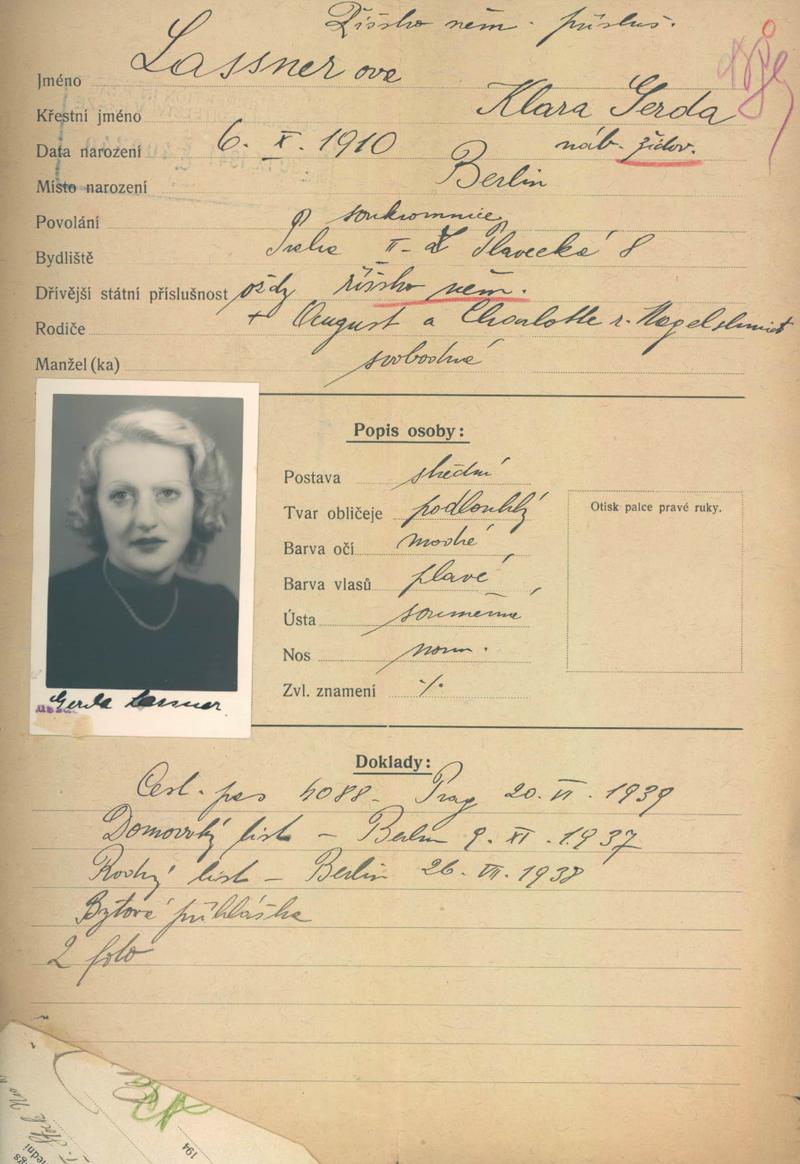 Říšsko něm. přísluš.
Jméno Lassner ova
Křestní jméno Klara Gerda
Data narození 6. X. 1910 náb. židov.
Místo narození Berlin
Povolání soukromnice
Bydliště Praha II - Plavecká 8
Dřívější státní příslušnost vždy říšsko něm.
Rodiče + August a Charlotte r.
Manžel (ka) svobodná
Popis osoby:
Postava střední
Tvar obličeje podlouhlý
Otisk palce pravé ruky.
Barva očí modré
Barva vlasů plavé
Ústa souměrná
Nos norm.
Zvl. znamení ./.
Gerda Lassner.
Doklady:
Cest. pas 4088 - Prag 20. VI. 1939
Domovský list - Berlin 9. XI. 1937
Rodný list - Berlin 26. VII. 1938
Bytová přihláška
2 foto
194